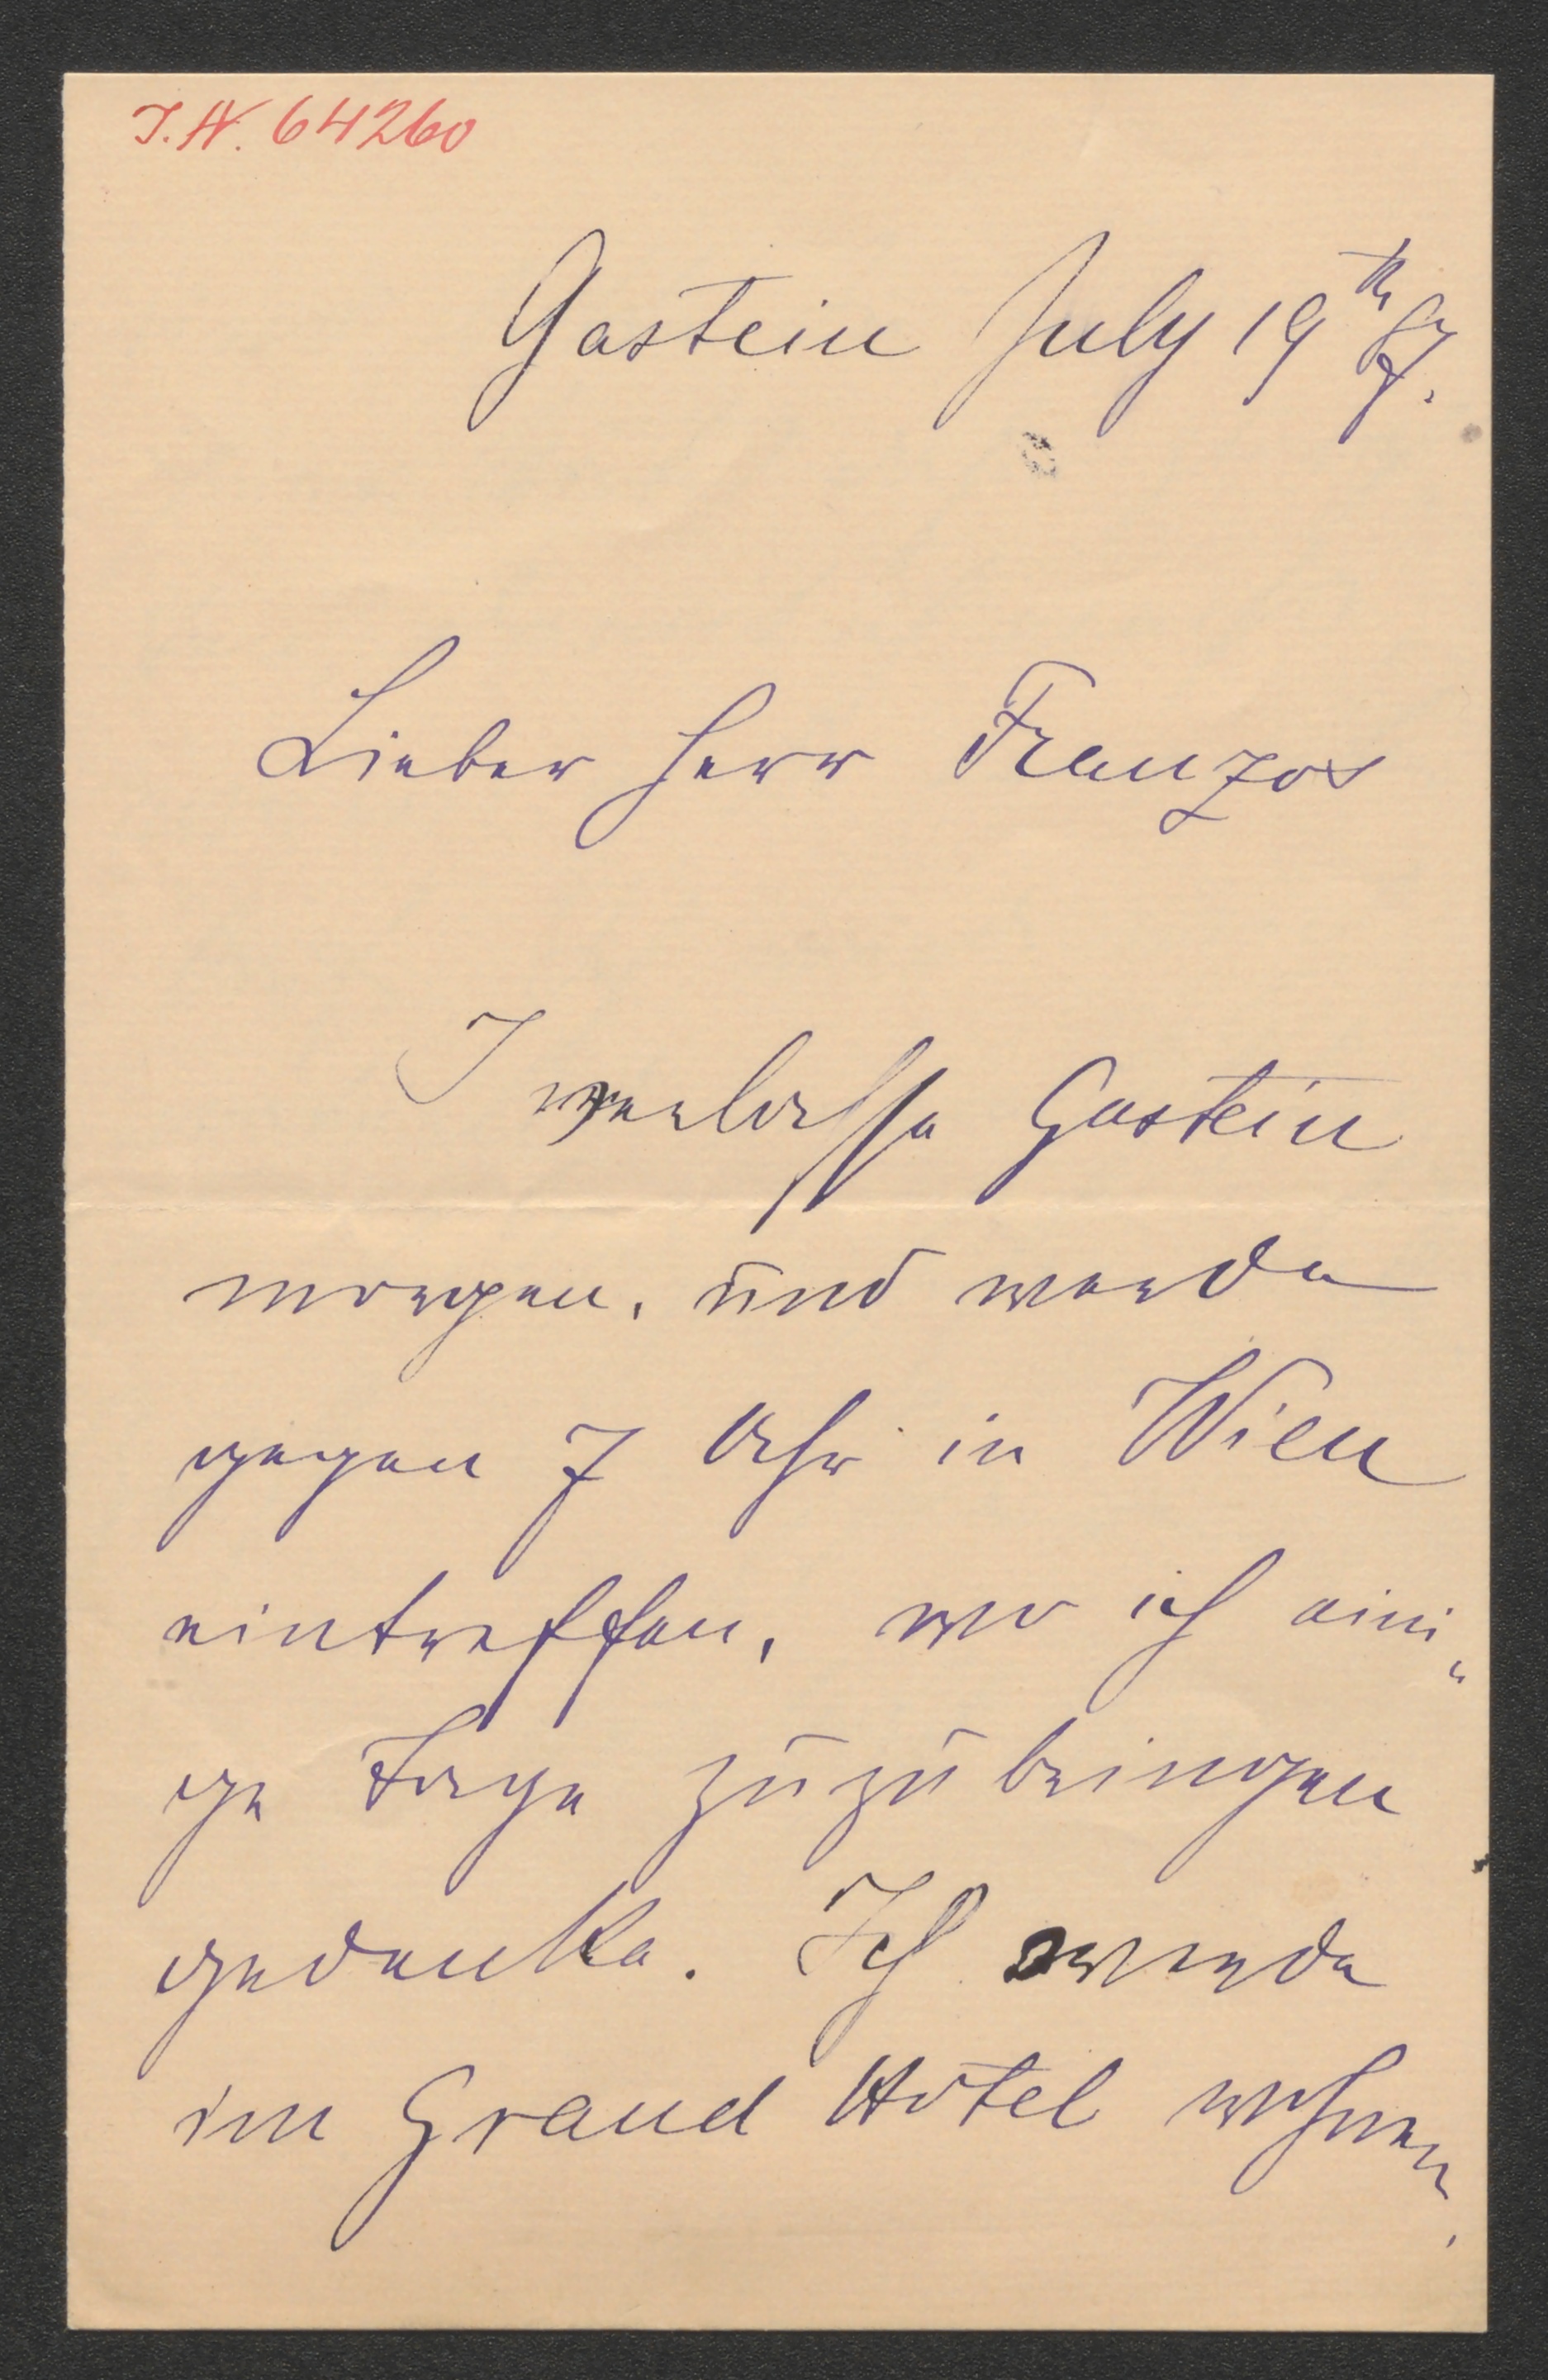 I.N. 64260
Gastein July 19th 87.
Lieber Herr Franzos
I verlasse Gastein
morgen, und werde
gegen 7 Uhr in Wien
eintreffen, wo ich eini„
ge Tage zuzubringen
gedenke. Ich werde
im Grand Hôtel wohnen,